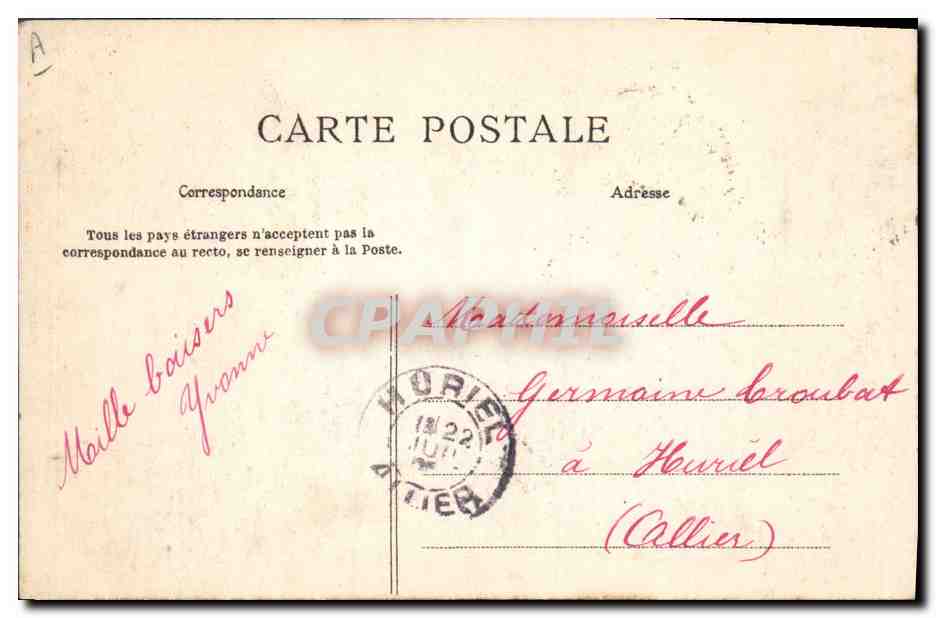 A
CARTE POSTALE
Correspondance
Adresse
Tous les pays étrangers n'acceptent pas la
correspondance au recto, se renseigner à la Poste.
Mille baisers
Yvonne
CPAPHIL
Mademoiselle
Germaine Croubat
à Huriel
(Allier)
HURIEL
22
ALLIER